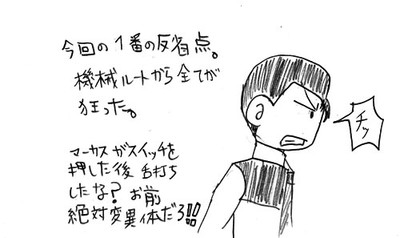 今回の1番の反省点。
機械ルートから全てが
狂った。
マーカスがスイッチを
押した後舌打ち
したな？お前
絶対変異体だろ!!
チッ